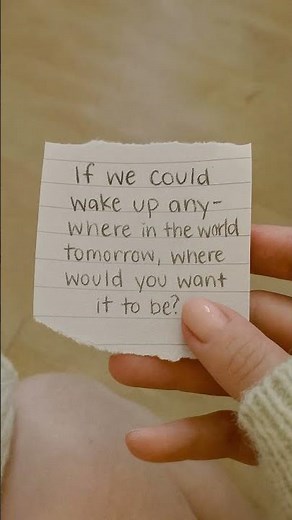 If we could
wake up any-
where in the world
tomorrow, where
would you want
it to be?